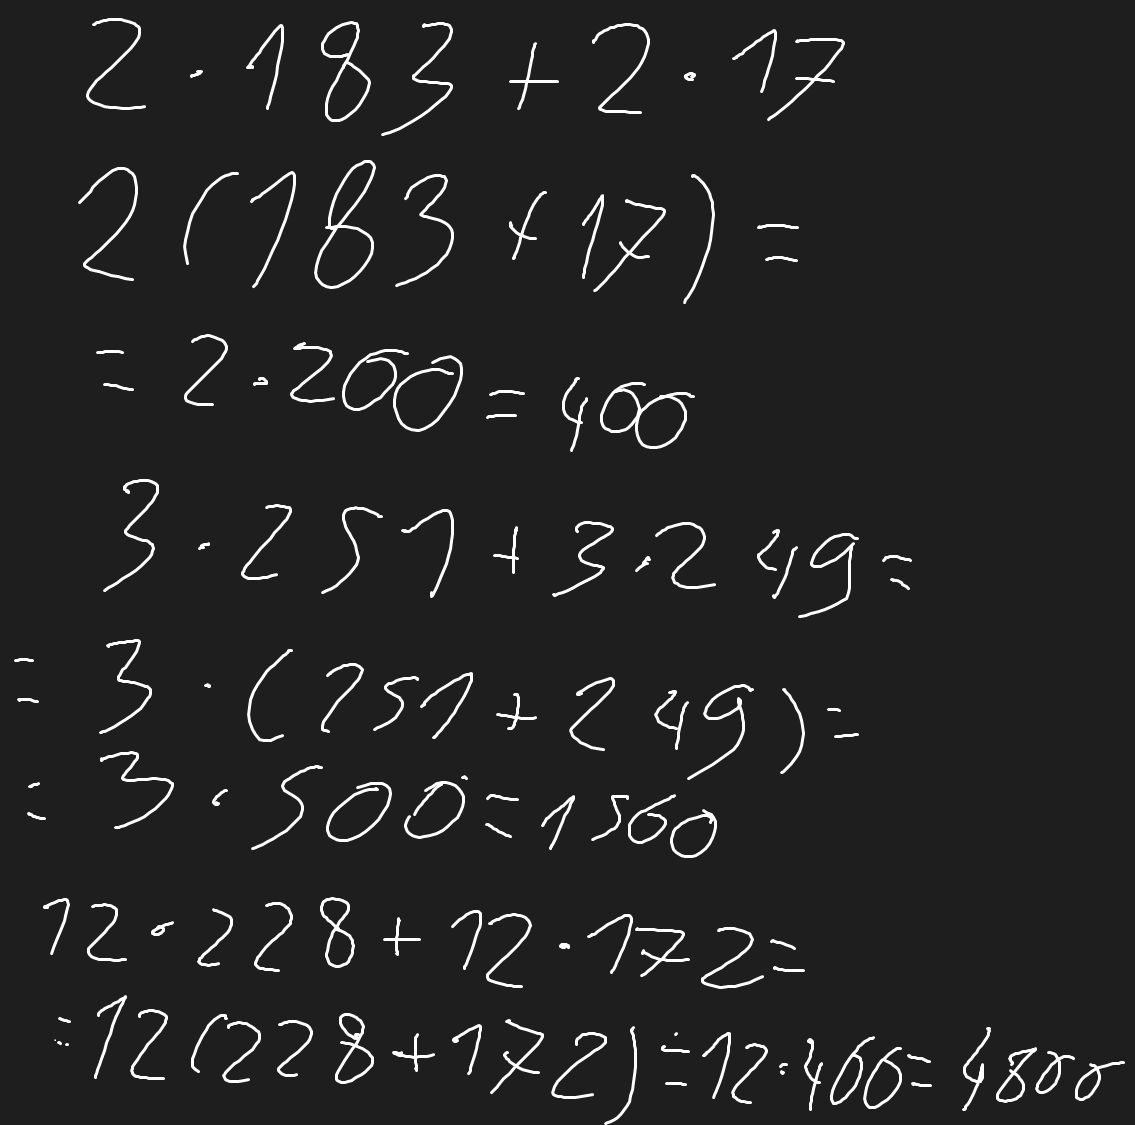 2 · 183 + 2 · 17
2(183 + 17) =
= 2 · 200 = 400
3 · 251 + 3 · 249 =
= 3 · (251 + 249) =
= 3 · 500 = 1500
12 · 228 + 12 · 172 =
= 12(228 + 172) = 12 · 400 = 4800